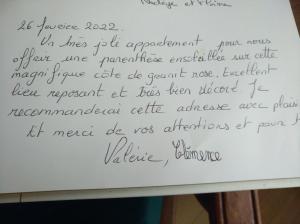 26 février 2022.
Un très joli appartement pour nous
offrir une parenthèse ensoleillée sur cette
magnifique côte de granit rose. Excellent
lieu reposant et très bien décoré. Je
recommanderai cette adresse avec plaisi
Et merci de vos attentions et pour
Valérie, Clémence